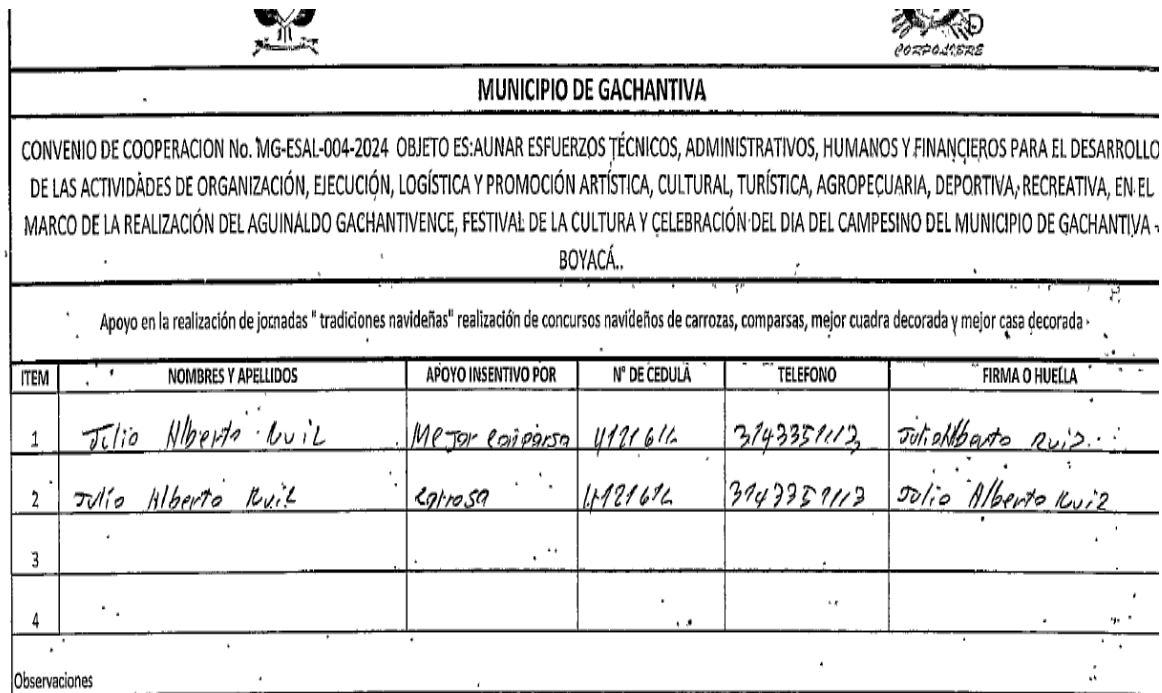 CORPOLIBRE
MUNICIPIO DE GACHANTIVA
CONVENIO DE COOPERACION No. MG-ESAL-004-2024 OBJETO ES:AUNAR ESFUERZOS TÉCNICOS, ADMINISTRATIVOS, HUMANOS Y FINANCIEROS PARA EL DESARROLLO
DE LAS ACTIVIDADES DE ORGANIZACIÓN, EJECUCIÓN, LOGÍSTICA Y PROMOCIÓN ARTÍSTICA, CULTURAL, TURÍSTICA, AGROPECUARIA, DEPORTIVA, RECREATIVA, EN EL
MARCO DE LA REALIZACIÓN DEL AGUINALDO GACHANTIVENCE, FESTIVAL DE LA CULTURA Y CELEBRACIÓN DEL DIA DEL CAMPESINO DEL MUNICIPIO DE GACHANTIVA -
BOYACÁ..
Apoyo en la realización de jornadas " tradiciones navideñas" realización de concursos navideños de carrozas, comparsas, mejor cuadra decorada y mejor casa decorada
ITEM NOMBRES Y APELLIDOS APOYO INSENTIVO POR N° DE CEDULA TELEFONO FIRMA O HUELLA
1 Julio Alberto Ruiz Mejor comparsa 3143351113 Julio Alberto Ruiz
2 Julio Alberto Ruiz 3143351113 Julio Alberto Ruiz
3
4
Observaciones